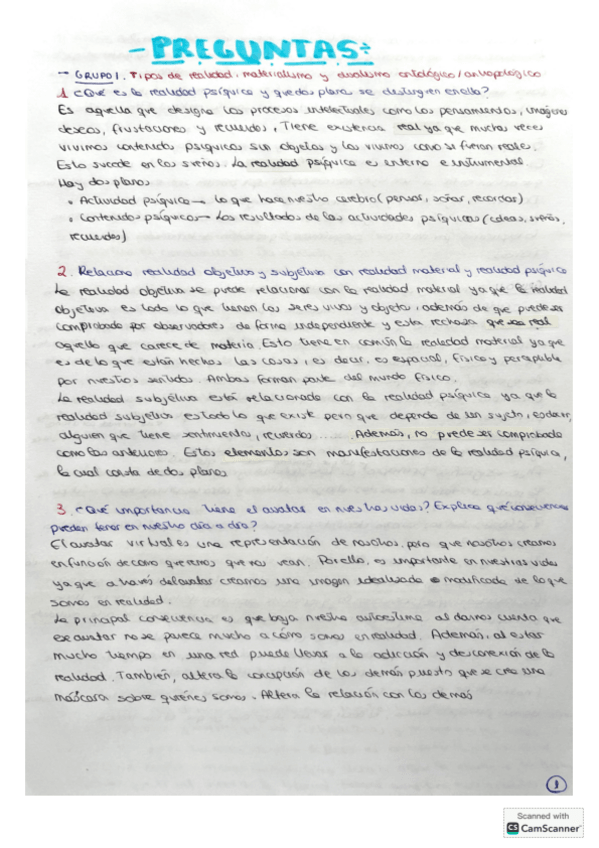 - PREGUNTAS:
- GRUPO 1. Tipos de realidad. materialismo y dualismo ontológico/antropológico
1. ¿Qué es la realidad psíquica y que dos planos se distinguen en ella?
Es aquella que designa los procesos intelectuales como los pensamientos, imágenes
deseos, frustaciones y recuerdos. Tiene existencia real ya que muchas veces
vivimos contenidos psíquicos sin objetos y los vivimos como si fueran reales.
Esto sucede en los sueños. La realidad psíquica es interna e instrumental
Hay dos planos
• Actividad psíquica → lo que hace nuestro cerebro (pensar, soñar, recordar)
• Contenidos psíquicos → Los resultados de las actividades psíquicas (ideas, sueños,
recuerdos)
2. Relaciona realidad objetiva y subjetiva con realidad material y realidad psíquica
La realidad objetiva se puede relacionar con la realidad material ya que la realidad
objetiva es todo lo que tienen los seres vivos y objetos, además de que puede ser
comprobado por observadores de forma independiente y esta rechaza
aquello que carece de materia. Esto tiene en común la realidad material ya que
es de lo que están hechas las cosas, es decir, es espacial, física y perceptible
por nuestros sentidos. Ambas forman parte del mundo físico.
La realidad subjetiva está relacionada con la realidad psíquica ya que la
realidad subjetiva es todo lo que existe pero que depende de un sujeto, es decir,
alguien que tiene sentimientos, recuerdos ...... Además, no puede ser comprobada
como las anteriores. Estos elementos son manifestaciones de la realidad psíquica,
la cual consta de dos planos
3. ¿Qué importancia tiene el avatar en nuestras vidas? Explica qué consecuencias
pueden tener en nuestro día a día?
El avatar virtual es una representación de nosotros, pero que nosotros creamos
en función de como queremos que nos vean. Por ello, es importante en nuestras vidas
ya que a través del avatar creamos una imagen idealizada o modificada de lo que
somos en realidad.
La principal consecuencia es que baja nuestro autoestima al darnos cuenta que
ese avatar no se parece mucho a cómo somos en realidad. Además, al estar
mucho tiempo en una red puede llevar a la adicción y desconexión de la
realidad. También, altera la concepción de los demás puesto que se crea una
máscara sobre quiénes somos. Altera la relación con los demás
1
Scanned with
CS CamScanner